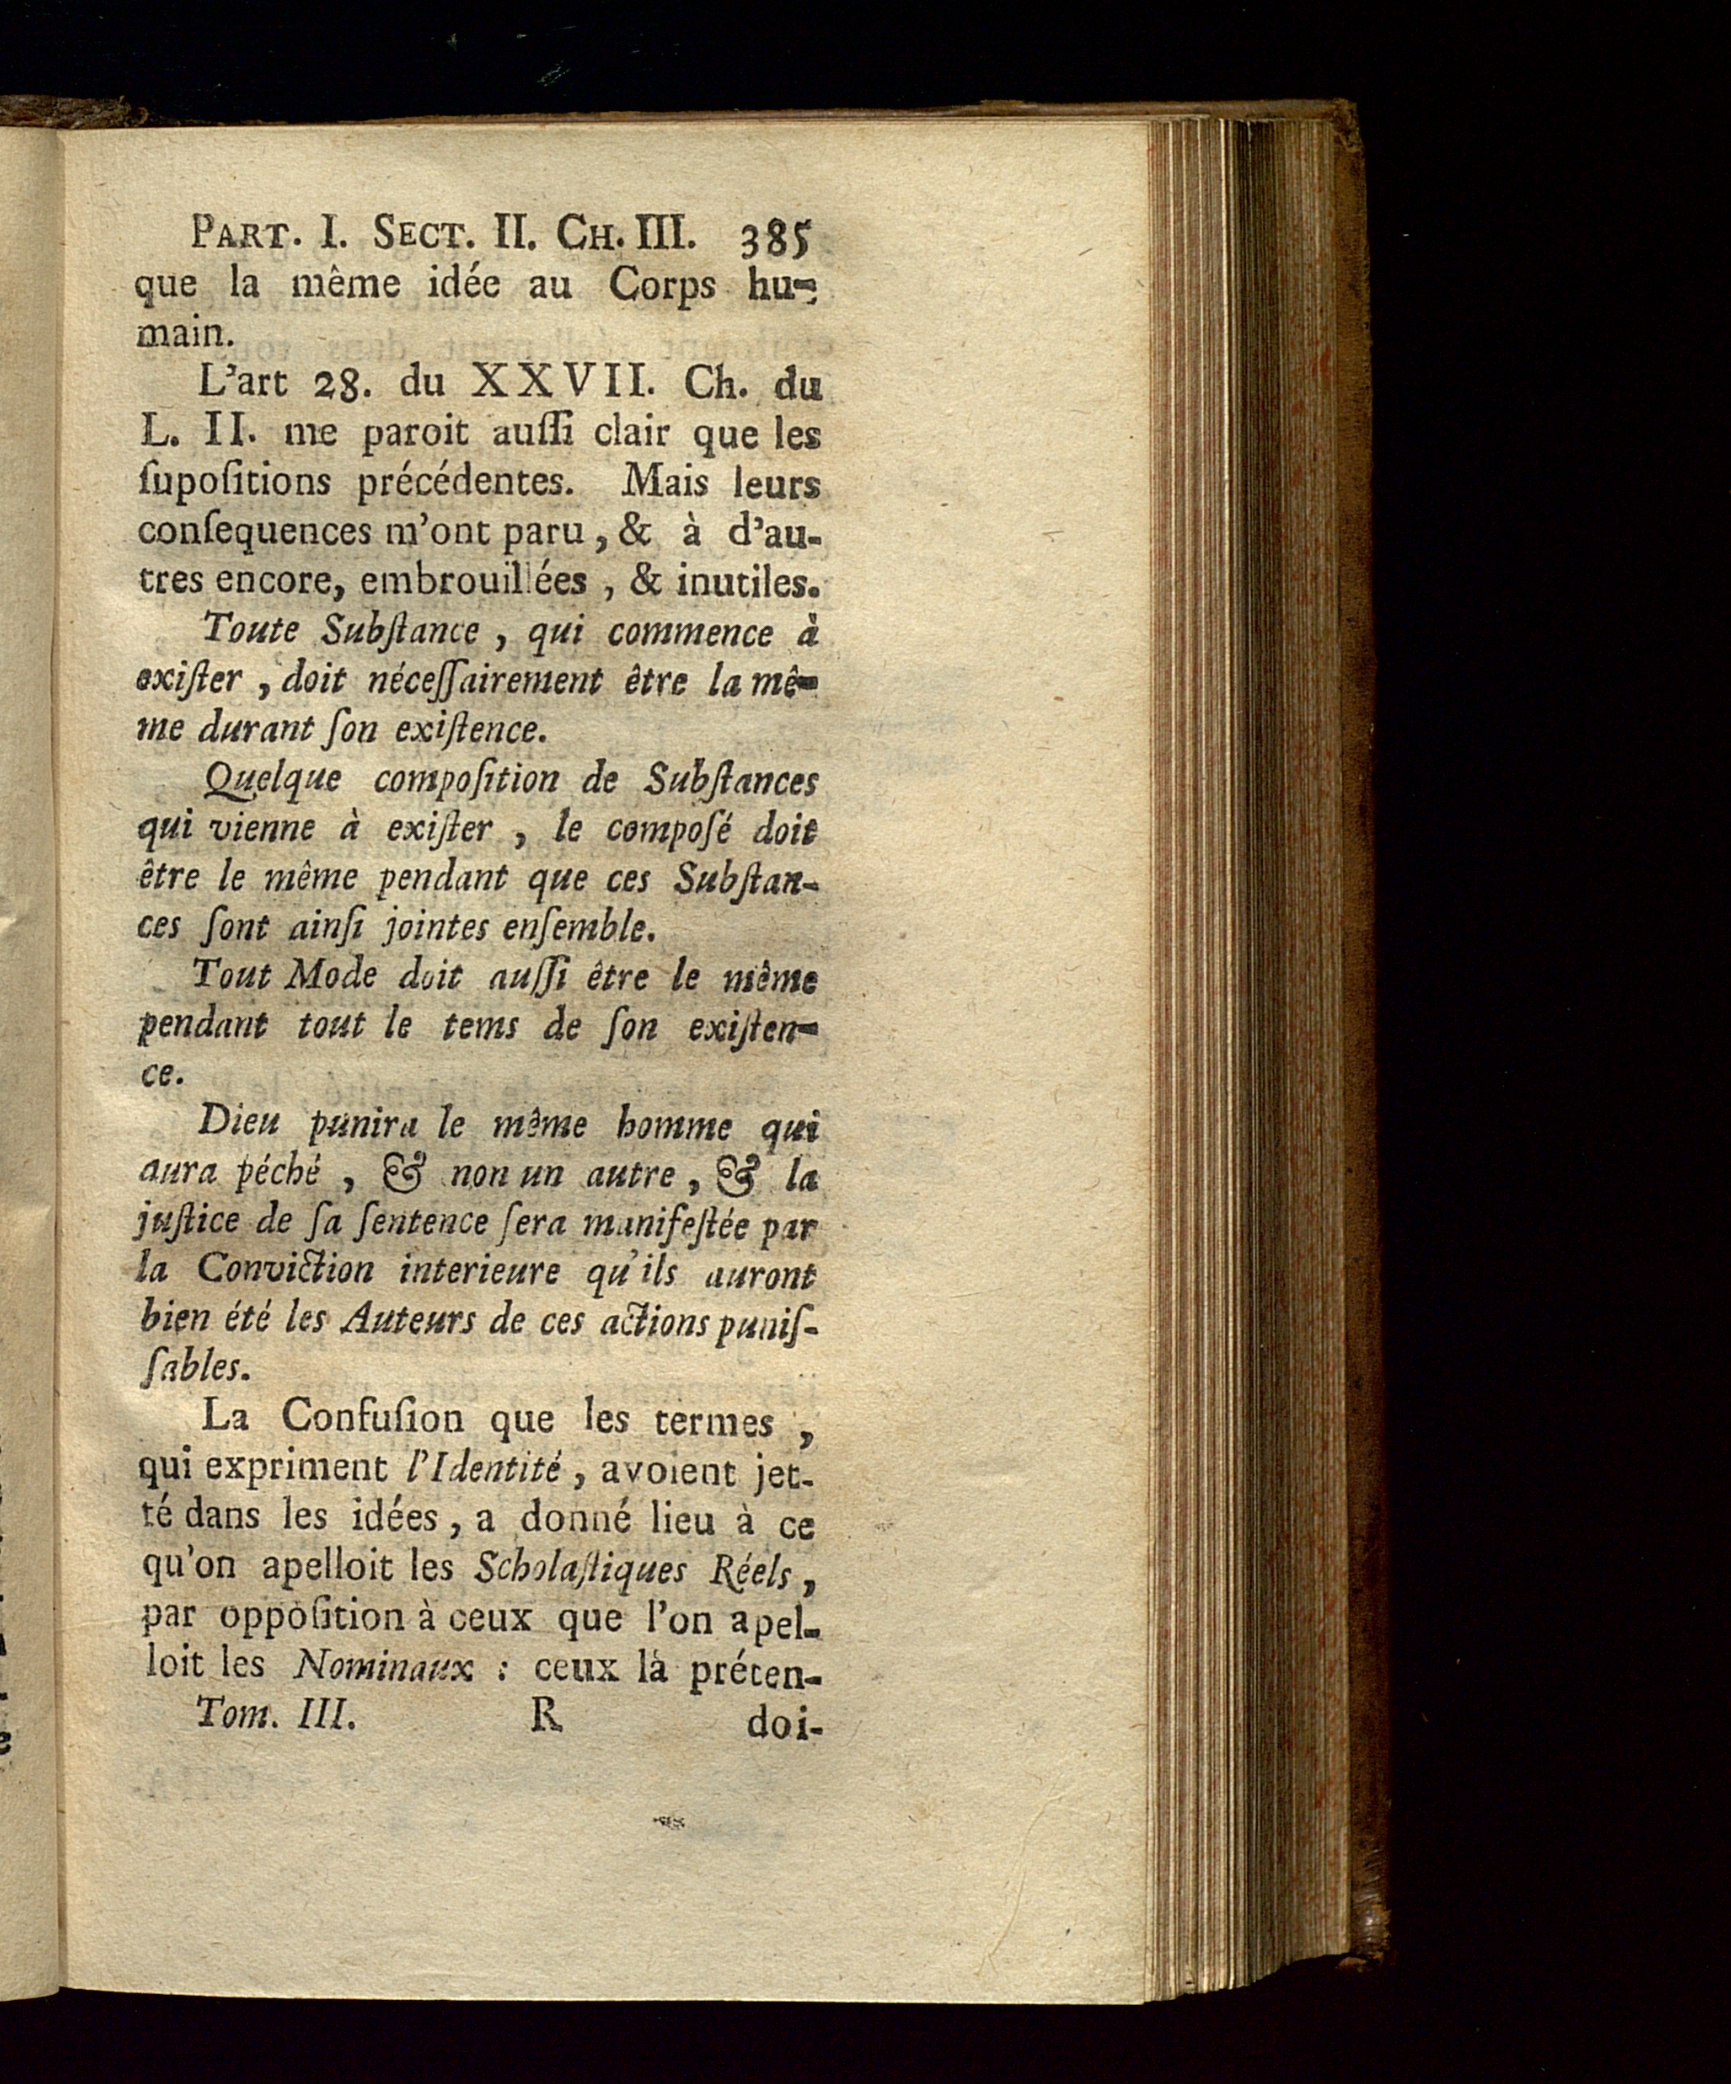 PART. I. SECT. II. CH. III. 385
que la même idée au Corps hu-
main.
L'art 28. du XXVII. Ch. du
L. II. me paroit auſſi clair que les
ſupoſitions précédentes. Mais leurs
conſequences m'ont paru, & à d'au-
tres encore, embrouillées, & inutiles.
Toute Subſtance, qui commence à
exiſter, doit néceſſairement être la mê-
me durant ſon exiſtence.
Quelque compoſition de Subſtances
qui vienne à exiſter, le compoſé doit
être le même pendant que ces Subſtan-
ces ſont ainſi jointes enſemble.
Tout Mode doit auſſi être le même
pendant tout le tems de ſon exiſten-
ce.
Dieu punira le même homme qui
aura péché, & non un autre, & la
juſtice de ſa ſentence ſera manifeſtée par
la Conviction interieure qu'ils auront
bien été les Auteurs de ces actions puniſ-
ſables.
La Confuſion que les termes,
qui expriment l'Identité, avoient jet-
té dans les idées, a donné lieu à ce
qu'on apelloit les Scholaſtiques Réels,
par oppoſition à ceux que l'on apel-
loit les Nominaux : ceux là préten-
Tom. III. R doi-